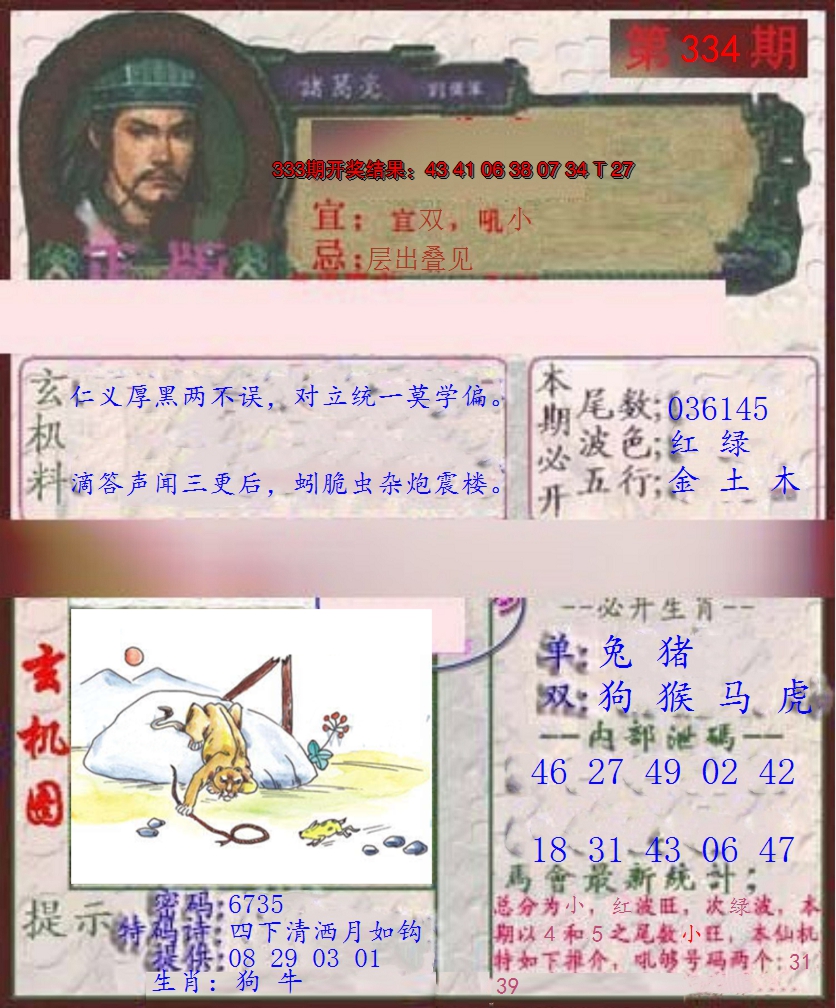 第 334 期
諸葛亮
333期开奖结果：43 41 06 38 07 34 T 27
宜：宜双，吼小
忌：层出叠见
正版
玄机料
仁义厚黑两不误，对立统一莫学偏。
滴答声闻三更后，蚓脆虫杂炮震楼。
本期必开
尾数：036145
波色：红 绿
五行：金 土 木
玄机图
--必开生肖--
单：兔 猪
双：狗 猴 马 虎
—内部泄碼—
46 27 49 02 42
18 31 43 06 47
馬會最新統計；
总分为小，红波旺，次绿波，本
期以4和5之尾数小旺，本仙机
特如下推介，吼够号码两个：31
39
提示
密码：6735
特码诗：四下清洒月如钩
提供：08 29 03 01
生肖：狗 牛